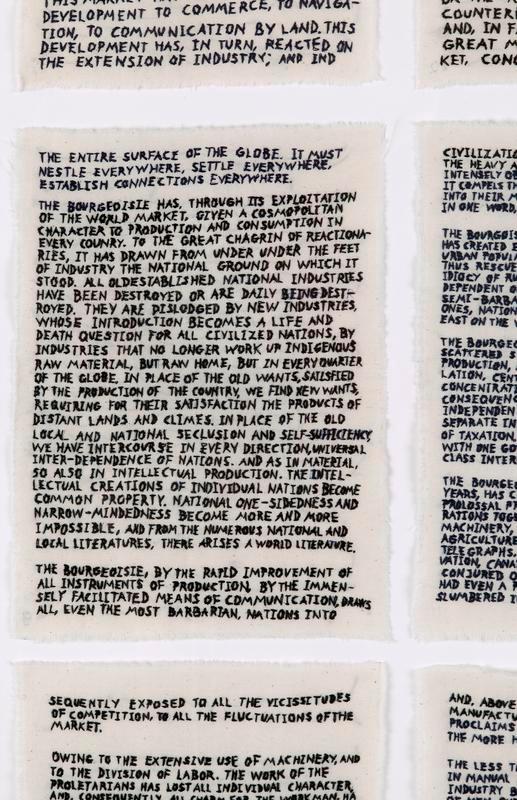 THIS MARKET HAS
DEVELOPMENT TO COMMERCE, TO NAVIGA-
TION, TO COMMUNICATION BY LAND. THIS
DEVELOPMENT HAS, IN TURN, REACTED ON
THE EXTENSION OF INDUSTRY; AND IND
COUNTER
AND, IN F
GREAT M
KET, CONG
THE ENTIRE SURFACE OF THE GLOBE. IT MUST
NESTLE EVERYWHERE, SETTLE EVERYWHERE,
ESTABLISH CONNECTIONS EVERYWHERE.
THE BOURGEOISIE HAS, THROUGH ITS EXPLOITATION
OF THE WORLD MARKET, GIVEN A COSMOPOLITAN
CHARACTER TO PRODUCTION AND CONSUMPTION IN
EVERY COUNRY. TO THE GREAT CHAGRIN OF REACTIONA-
RIES, IT HAS DRAWN FROM UNDER UNDER THE FEET
OF INDUSTRY THE NATIONAL GROUND ON WHICH IT
STOOD. ALL OLDESTABLISHED NATIONAL INDUSTRIES
HAVE BEEN DESTROYED OR ARE DAILY BEING DEST-
ROYED. THEY ARE DISLODGED BY NEW INDUSTRIES,
WHOSE INTRODUCTION BECOMES A LIFE AND
DEATH QUESTION FOR ALL CIVILIZED NATIONS, BY
INDUSTRIES THAT NO LONGER WORK UP INDIGENOUS
RAW MATERIAL, BUT RAW HOME, BUT IN EVERY QUARTER
OF THE GLOBE. IN PLACE OF THE OLD WANTS, SAILSFIED
BY THE PRODUCTION OF THE COUNTRY, WE FIND NEW WANTS,
REQUIRING FOR THEIR SATISFACTION THE PRODUCTS OF
DISTANT LANDS AND CLIMES. IN PLACE OF THE OLD
LOCAL AND NATIONAL SECLUSION AND SELF-SUFFICIENCY,
WE HAVE INTERCOURSE IN EVERY DIRECTION, UNIVERSAL
INTER-DEPENDENCE OF NATIONS. AND AS IN MATERIAL,
SO ALSO IN INTELLECTUAL PRODUCTION. THE INTEL-
LECTUAL CREATIONS OF INDIVIDUAL NATIONS BECOME
COMMON PROPERTY. NATIONAL ONE-SIDEDNESS AND
NARROW-MINDEDNESS BECOME MORE AND MORE
IMPOSSIBLE, AND FROM THE NUMEROUS NATIONAL AND
LOCAL LITERATURES, THERE ARISES A WORLD LITERATURE.
THE BOURGEOISIE, BY THE RAPID IMPROVEMENT OF
ALL INSTRUMENTS OF PRODUCTION, BY THE IMMEN-
SELY FACILITATED MEANS OF COMMUNICATION, DRAWS
ALL, EVEN THE MOST BARBARIAN, NATIONS INTO
CIVILIZATIO
THE HEAVY A
INTENSELY OB
IT COMPELS TH
INTO THEIR M
IN ONE WORD,
THE BOURGEOIS
HAS CREATED E
URBAN POPULA
THUS RESCUE
IDIOCY OF RU
DEPENDENT O
SEMI-BARBA
ONES, NATION
EAST ON THE
THE BOURGEO
SCATTERED S
PRODUCTION,
LATION, CENT
CONCENTRATE
CONSEQUENC
INDEPENDEN
SEPARATE IN
OF TAXATION,
WITH ONE GO
CLASS INTER
THE BOURGEO
YEARS, HAS C
PROLOSSAL PR
RATIONS TOGE
MACHINERY,
AGRICULTURE
TELEGRAPHS,
VATION, CANA
CONJURED O
HAD EVEN A P
SLUMBERED I
SEQUENTLY EXPOSED TO ALL THE VICISSITUDES
OF COMPETITION, TO ALL THE FLUCTUATIONS OF THE
MARKET.
OWING TO THE EXTENSIVE USE OF MACHINERY, AND
TO THE DIVISION OF LABOR. THE WORK OF THE
PROLETARIANS HAS LOST ALL INDIVIDUAL CHARACTER,
AND, CONSEQUENTLY, ALL CHARM FOR THE WORKMAN. HA
AND, ABOVE
MANUFACTU
PROCLAIMS
THE MORE H
THE LESS T
IN MANUAL
INDUSTRY B